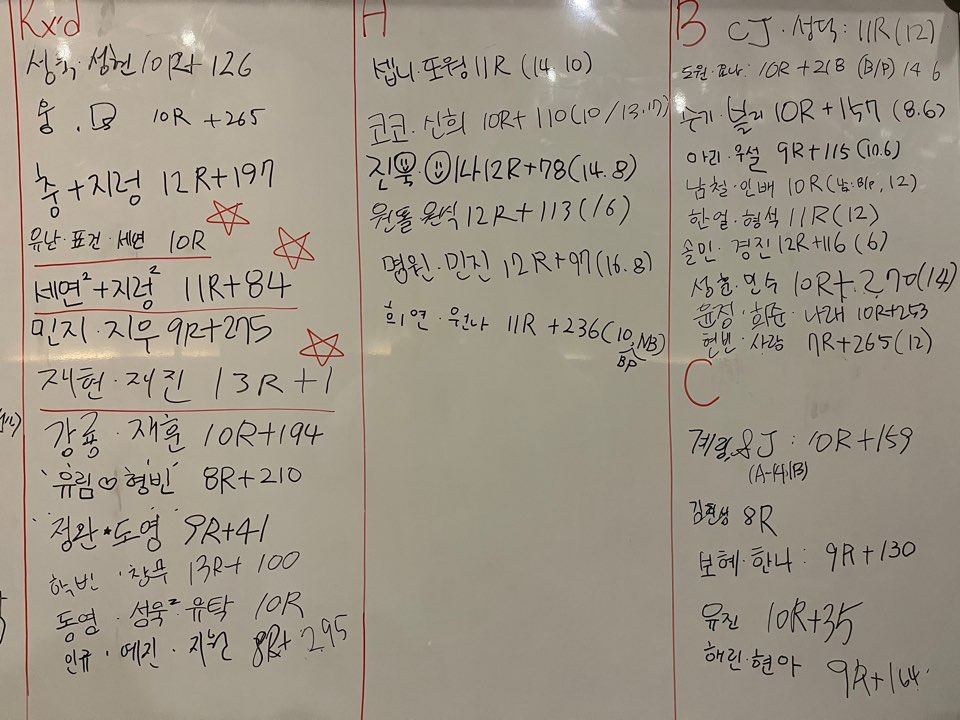 Rx'd
성혁·성현 10R+126
웅. 10R +265
충+지렁 12R+197
유난·표건·세연 10R
세연²+지렁² 11R+84
민지·지우 9R+275
재헌·재진 13R+1
강룡·재훈 10R+194
유림♡형빈 8R+210
정완★도영 9R+41
학빈·창무 13R+100
동영·성욱²·유탁 10R
인규·예진·지원 8R+295
H
셉니·또웡 11R (14.10)
코코·신희 10R+110(10/13.17)
진묵·나 12R+78(14.8)
원돌 원식 12R+113(16)
명원·민진 12R+97(16.8)
희연·원나 11R +236(10, NB)
BP
B
CJ·성덕: 11R(12)
도원·요나: 10R+218 (B/P) 14 6
슈기·볼리 10R+157 (8.6)
아리·우설 9R+115(10.6)
남철·인배 10R(남:B/P, 12)
한얼·형석 11R(12)
솔민·경진 12R+116(6)
성훈·민수 10R+270(14)
윤정·희준·나래 10R+253
현빈·사랑 7R+265(12)
C
계림&J: 10R+159
8R
보혜·한나: 9R+130
유진 10R+35
해린·현아 9R+164